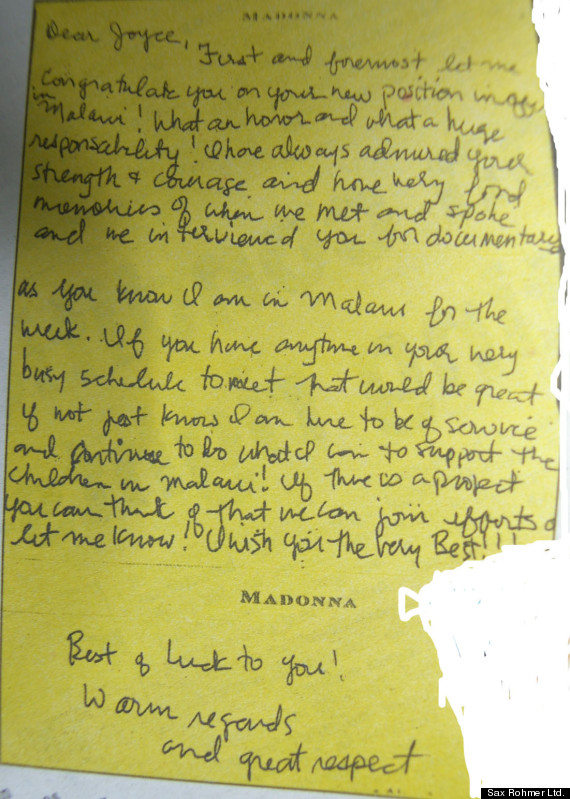 MADONNA
Dear Joyce,
First and foremost let me
congratulate you on your new position in
in Malawi! What an honor and what a huge
responsability! I have always admired your
strength & courage and have very fond
memories of when we met and spoke
and we interviewed you for documentary
as you know I am in Malawi for the
week. If you have anytime in your very
busy schedule to meet that would be great
if not just know I am here to be of service
and continue to do what I can to support the
children in Malawi! If there is a project
you can think of that we can join efforts
let me know! I wish you the very Best!!!
MADONNA
Best of luck to you!
Warm regards
and great respect
Sax Rohmer Ltd.